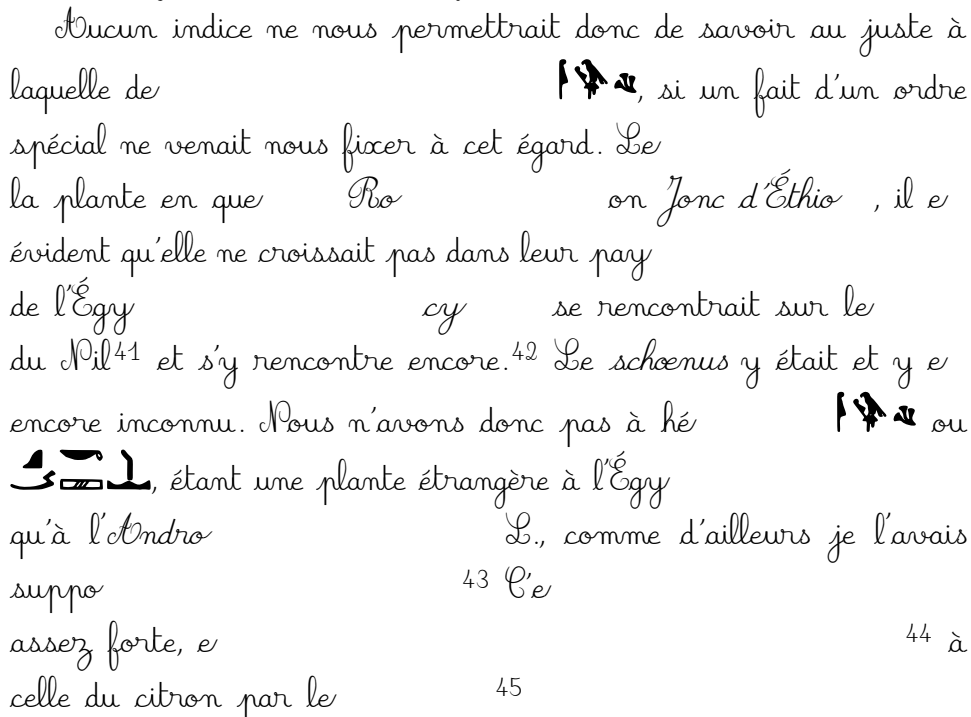 Aucun indice ne nous permettrait donc de savoir au juste à
laquelle de , si un fait d'un ordre
spécial ne venait nous fixer à cet égard. Le
la plante en que Ro on Jonc d'Éthio , il e
évident qu'elle ne croissait pas dans leur pay
de l'Égy cy se rencontrait sur le
du Nil⁴¹ et s'y rencontre encore.⁴² Le schœnus y était et y e
encore inconnu. Nous n'avons donc pas à hé ou
, étant une plante étrangère à l'Égy
qu'à l'Andro L., comme d'ailleurs je l'avais
suppo ⁴³ C'e
assez forte, e ⁴⁴ à
celle du citron par le ⁴⁵